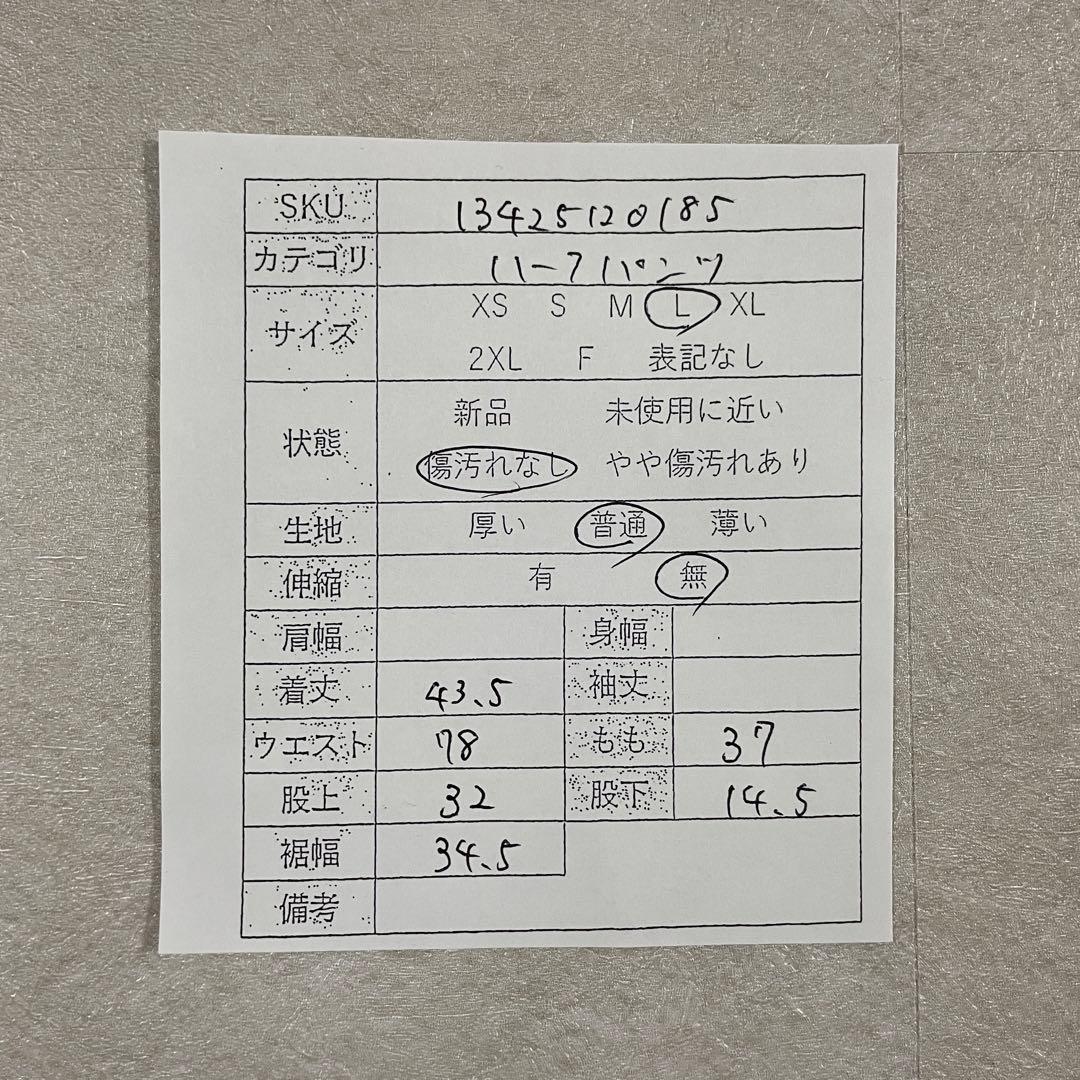 SKU 13425120185
カテゴリ ハーフパンツ
サイズ XS S M L XL
2XL F 表記なし
状態 新品 未使用に近い
傷汚れなし やや傷汚れあり
生地 厚い 普通 薄い
伸縮 有 無
肩幅 身幅
着丈 43.5 袖丈
ウエスト 78 もも 37
股上 32 股下 14.5
裾幅 34.5
備考